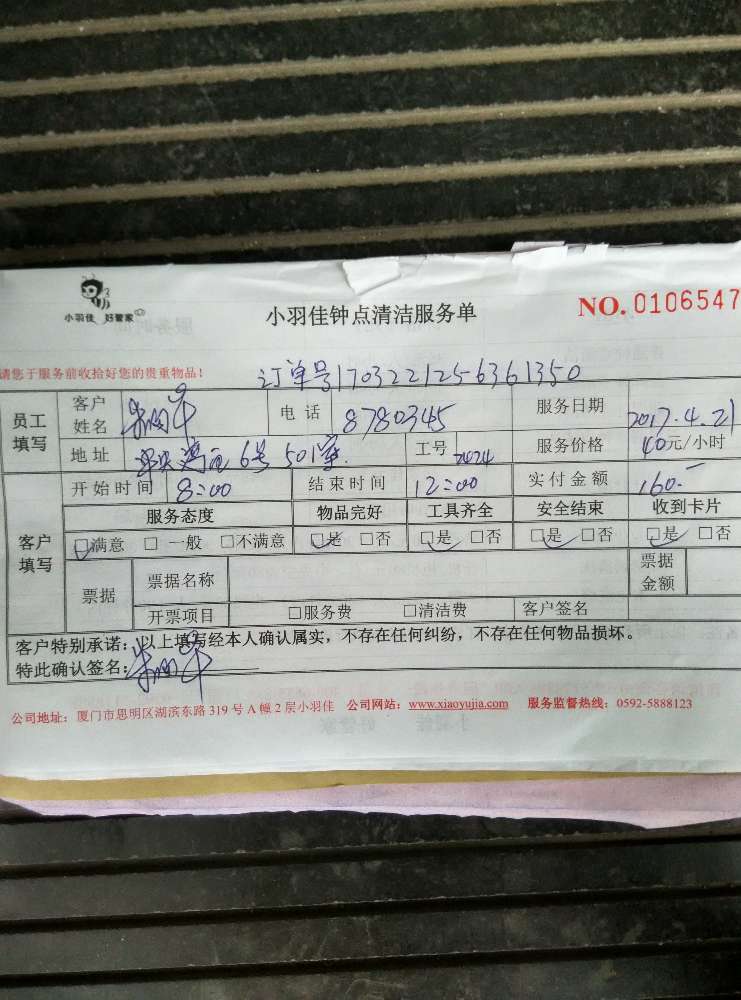 小羽佳 好管家
小羽佳钟点清洁服务单
NO. 0106547
请您于服务前收拾好您的贵重物品！
订单号1703221256361350
员工填写 客户姓名 电话 8780345 服务日期 2017.4.21
地址 6号501室 工号 2424 服务价格 40元/小时
客户填写 开始时间 8:00 结束时间 12:00 实付金额 160.-
服务态度 物品完好 工具齐全 安全结束 收到卡片
☑满意 □一般 □不满意 ☑是 □否 ☑是 □否 ☑是 □否 ☑是 □否
票据 票据名称 票据金额
开票项目 □服务费 □清洁费 客户签名
客户特别承诺：以上填写经本人确认属实，不存在任何纠纷，不存在任何物品损坏。
特此确认签名：
公司地址：厦门市思明区湖滨东路 319 号 A 幢 2 层小羽佳 公司网站：www.xiaoyujia.com 服务监督热线：0592-5888123